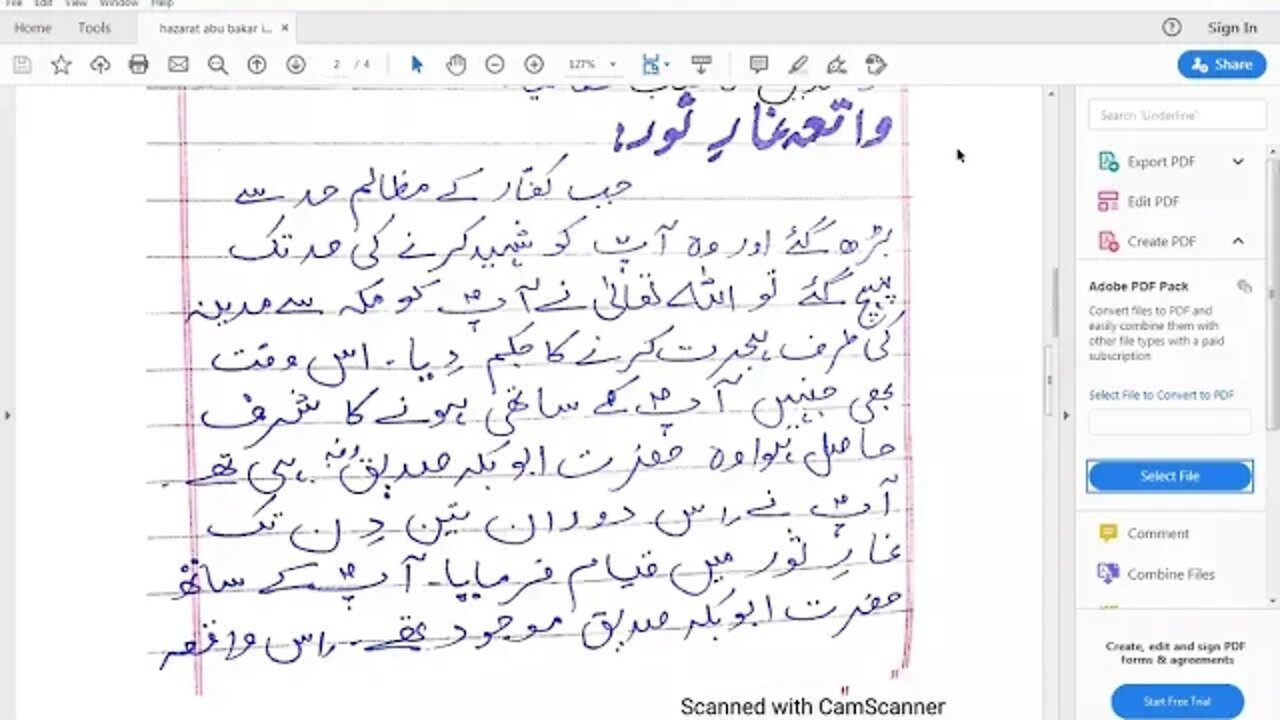 File Edit View Window Help
Home Tools hazarat abu bakar i... ×
Sign In
2 / 4 127%
Share
واقعہ غارِ ثور:
جب کفّار کے مظالم حد سے
بڑھ گئے اور وہ آپؐ کو شہید کرنے کی حد تک
پہنچ گئے تو اللہ تعالیٰ نے آپؐ کو مکہ سے مدینہ
کی طرف ہجرت کرنے کا حکم دِیا۔ اس وقت
بھی جنہیں آپؐ کے ساتھی ہونے کا شرف
حاصل ہوا وہ حضرت ابوبکر صدیقؓ ہی تھے۔
آپؐ نے اِس دوران تین دِن تک
غارِ ثور میں قیام فرمایا۔ آپؐ کے ساتھ
حضرت ابوبکر صدیق موجود تھے۔ اِس واقعہ
Scanned with CamScanner
Search 'Underline'
Export PDF
Edit PDF
Create PDF
Adobe PDF Pack
Convert files to PDF and
easily combine them with
other file types with a paid
subscription
Select File to Convert to PDF
Select File
Comment
Combine Files
Create, edit and sign PDF
forms & agreements
Start Free Trial